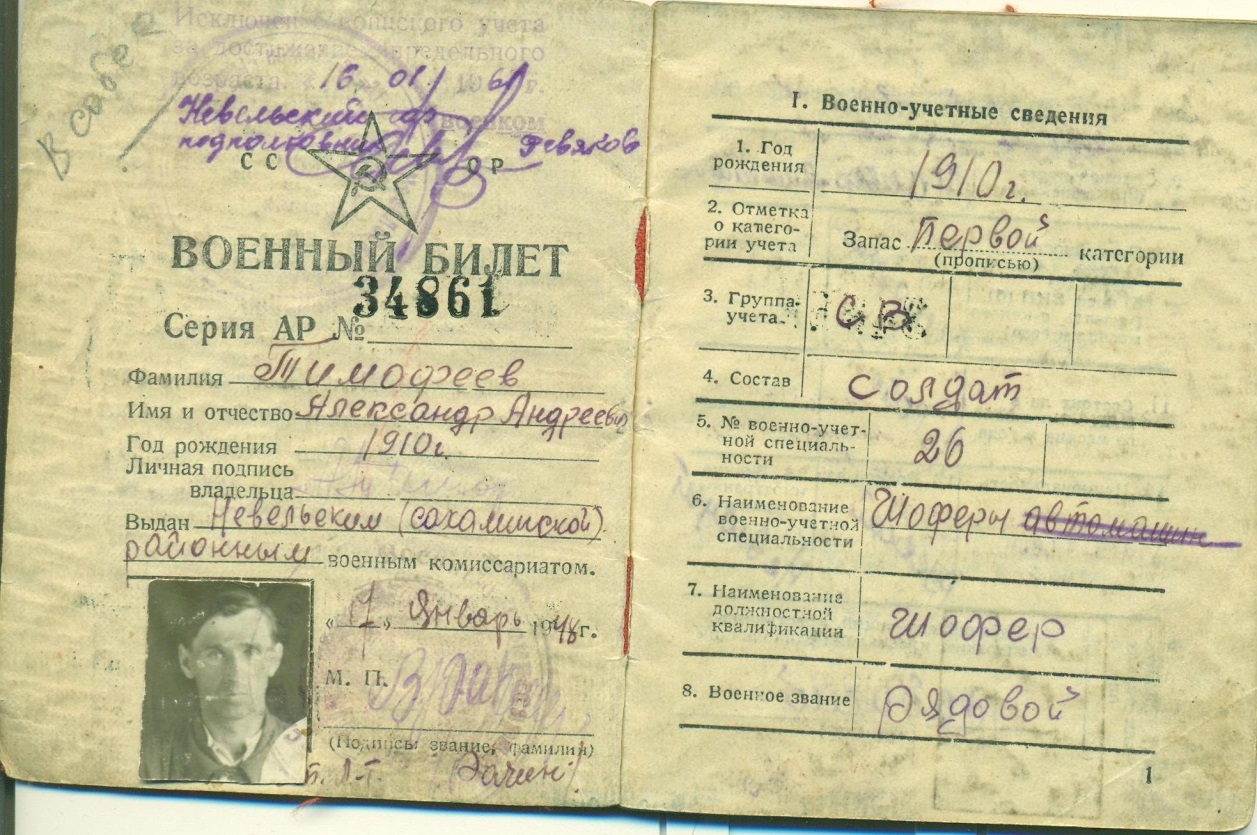 В собес
Исключен с воинского учета
за достижение предельного
возраста. «16» 01 1961г.
Невельский военком
подполковник Ревяков
СССР
ВОЕННЫЙ БИЛЕТ
34861
Серия АР №
Фамилия Тимофеев
Имя и отчество Александр Андреевич
Год рождения 1910г.
Личная подпись
владельца
Выдан Невельским (сахалинской)
районным военным комиссариатом.
«7» Январь 1948г.
М. П.
(Подпись, звание, фамилия)
I. Военно-учетные сведения
1. Год
рождения
1910г.
2. Отметка
о катего-
рии учета
Запас Первой категории
(прописью)
3. Группа
учета
СВ
4. Состав
солдат
5. № военно-учет-
ной специаль-
ности
26
6. Наименование
военно-учетной
специальности
Шоферы автомашин
7. Наименование
должностной
квалификации
шофер
8. Военное звание
рядовой
1